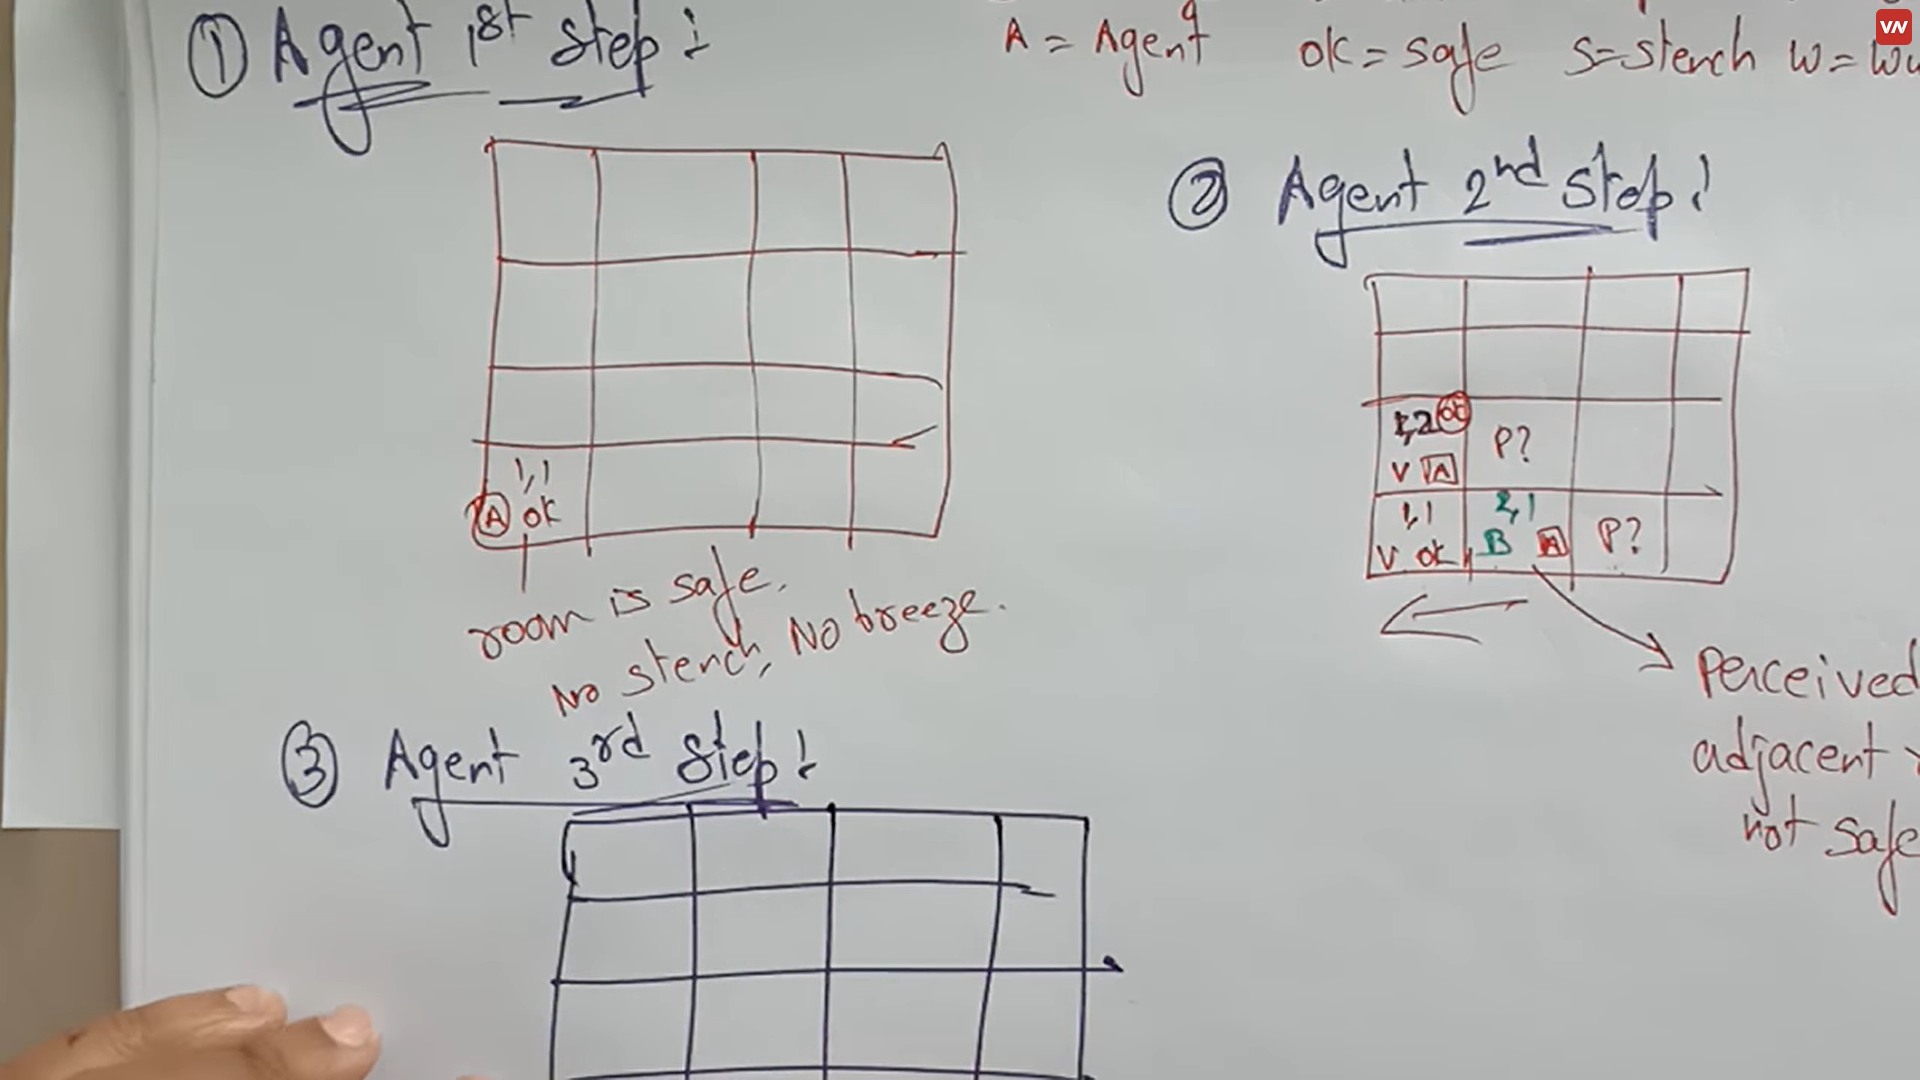 ① Agent 1st Step:
A = Agent ok = safe S=stench W = Wu
VN
1,1
A ok
room is safe.
No stench, No breeze.
② Agent 2nd Step:
1,2 ok P?
V A
1,1 2,1
V ok B A P?
Perceived
adjacent
not safe
③ Agent 3rd Step: